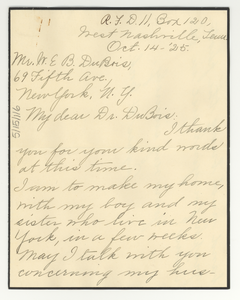 R.F.D. 11, Box 120,
West Nashville, Tenn.
Oct. 14-'25.
Mr. W. E. B. DuBois,
69 Fifth Ave.,
New York, N. Y.
My dear Dr. DuBois:
I thank
you for your kind words
at this time.
I am to make my home,
with my boy and my
sister who live in New
York, in a few weeks.
May I talk with you
concerning my hus-